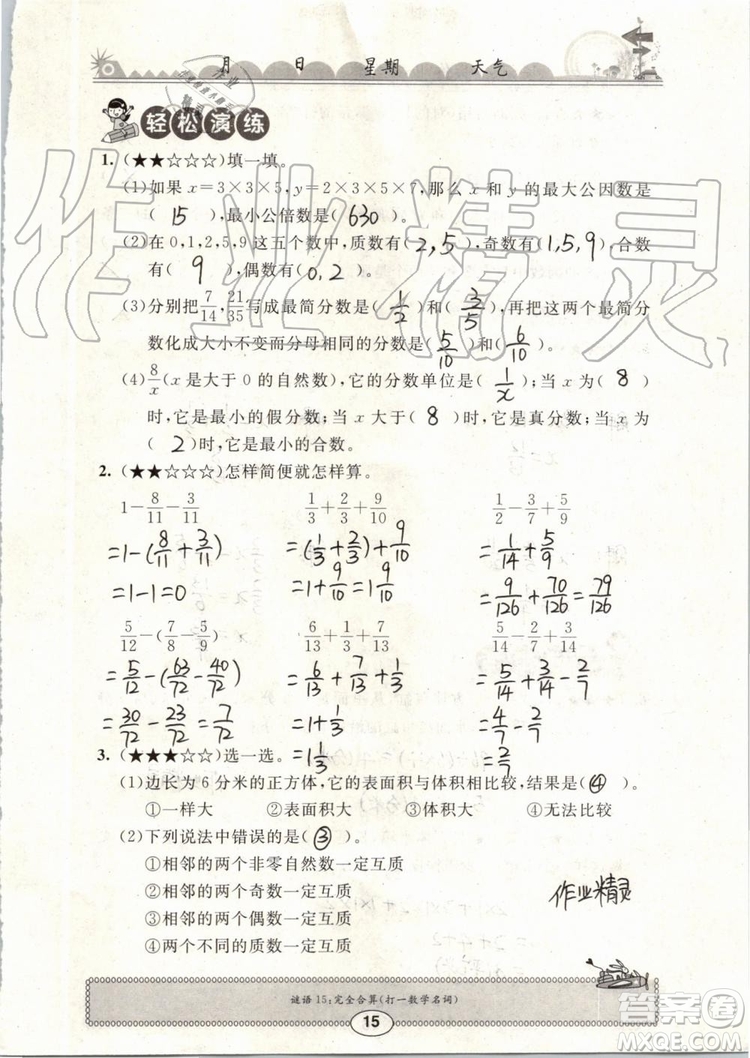 月 日 星期 天气
轻松演练
1. (★★☆☆☆)填一填。
(1)如果 x=3×3×5, y=2×3×5×7, 那么 x 和 y 的最大公因数是
( 15 ), 最小公倍数是( 630 )。
(2)在 0,1,2,5,9 这五个数中, 质数有( 2,5 ), 奇数有( 1,5,9 ), 合数
有( 9 ), 偶数有( 0,2 )。
(3)分别把 7/14, 21/35 写成最简分数是( 1/2 )和( 3/5 ), 再把这两个最简分
数化成大小不变而分母相同的分数是( 5/10 )和( 6/10 )。
(4) 8/x (x 是大于 0 的自然数), 它的分数单位是( 1/x ); 当 x 为( 8 )
时, 它是最小的假分数; 当 x 大于( 8 )时, 它是真分数; 当 x 为
( 2 )时, 它是最小的合数。
2. (★★☆☆☆)怎样简便就怎样算。
1-8/11-3/11 1/3+2/3+9/10 1/2-3/7+5/9
=1-(8/11+3/11) =(1/3+2/3)+9/10 =1/14+5/9
=1-1=0 =1+9/10=1 9/10 =9/126+70/126=79/126
5/12-(7/8-5/9) 6/13+1/3+7/13 5/14-2/7+3/14
=5/12-(63/72-40/72) =6/13+7/13+1/3 =5/14+3/14-2/7
=30/72-23/72=7/72 =1+1/3 =4/7-2/7
=1 1/3 =2/7
3. (★★★☆☆)选一选。
(1)边长为 6 分米的正方体, 它的表面积与体积相比较, 结果是( ④ )。
①一样大 ②表面积大 ③体积大 ④无法比较
(2)下列说法中错误的是( ③ )。
①相邻的两个非零自然数一定互质
②相邻的两个奇数一定互质
③相邻的两个偶数一定互质
④两个不同的质数一定互质
作业精灵
谜语 15: 完全合算(打一数学名词)
15
作业精灵
答案圈
MXQE.COM